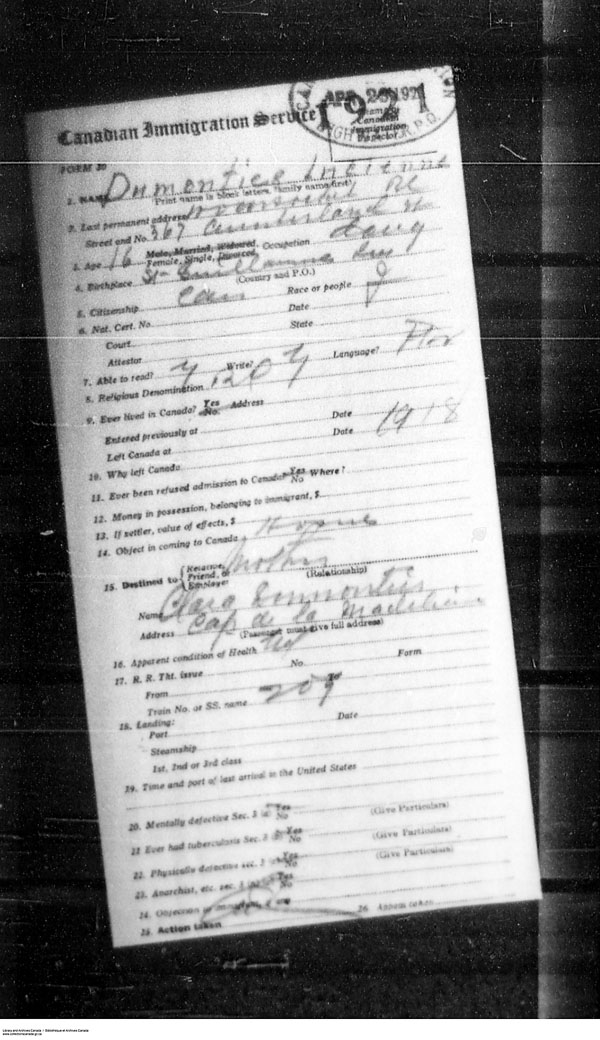 APR 26 1921
1921
HIGHWATER P.Q.
Canadian
Immigration
Inspector
Canadian Immigration Service
FORM 30
1. NAME Dumontier
Print name in block letters (family name first)
2. Last permanent address Woonsocket RI
Street and No. 367 Cumberland St
3. Age 16 Male, Married, Widowed, Occupation
Female, Single, Divorced,
4. Birthplace St Guillaume Que
(Country and P.O.)
5. Citizenship Can Race or people F
6. Nat. Cert. No. Date
Court State
Attestor
7. Able to read? Y Write? Y Language? Fr
8. Religious Denomination RC
9. Ever lived in Canada? Yes No. Address
Entered previously at Date
Left Canada at Date 1918
10. Why left Canada
11. Ever been refused admission to Canada? Yes No Where?
12. Money in possession, belonging to immigrant, $
13. If settler, value of effects, $
14. Object in coming to Canada Home
15. Destined to { Relative, Friend, or Employer Mother
(Relationship)
Name Clara Dumontier
Address Cap de la Madeleine
(Passenger must give full address)
16. Apparent condition of Health
17. R. R. Tkt. issue No. Form
From To
Train No. or SS. name 209
18. Landing:
Port Date
Steamship
1st, 2nd or 3rd class
19. Time and port of last arrival in the United States
20. Mentally defective Sec. 3 Yes No (Give Particulars)
21 Ever had tuberculosis Sec. 3 Yes No (Give Particulars)
22. Physically defective sec. 3 Yes No (Give Particulars)
23. Anarchist, etc. sec. 3 Yes No
24. Objection
25. Action taken
26.
Library and Archives Canada / Bibliothèque et Archives Canada
www.collectionscanada.gc.ca